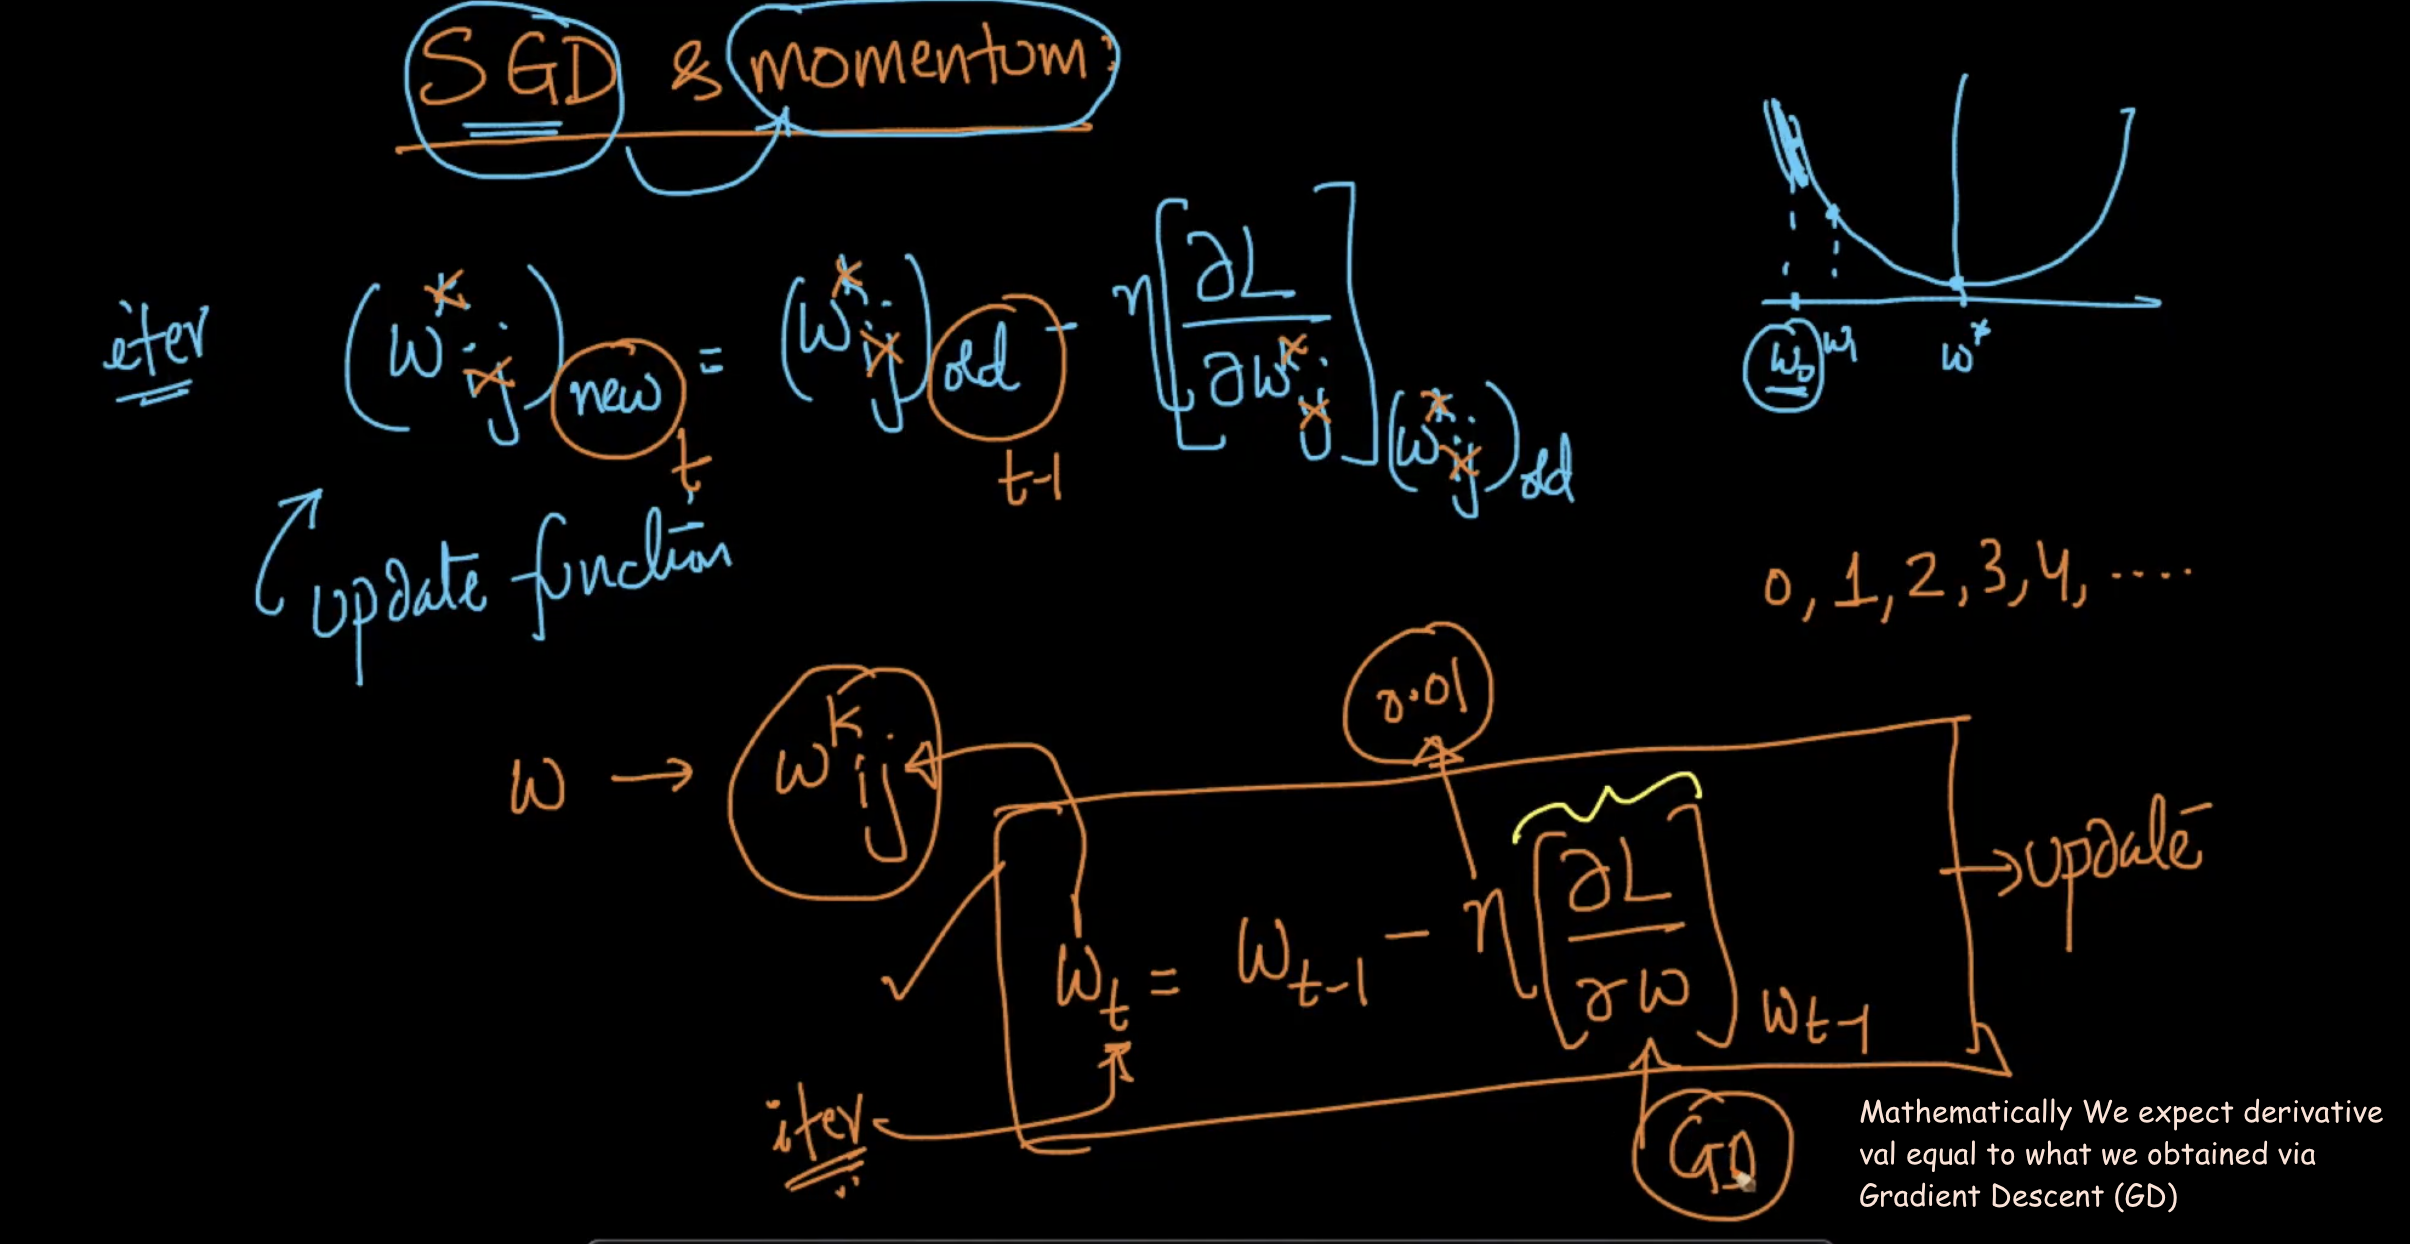 SGD & momentum:
iter (w^k_ij)_new = (w^k_ij)_old - η[∂L/∂w^k_ij]_(w^k_ij)_old
t
t-1
w₀ w₁ w*
update function
0, 1, 2, 3, 4, ....
0.01
w → w^k_ij
w_t = w_t-1 - η[∂L/∂w]_w_t-1 → update
iter
GD
Mathematically We expect derivative
val equal to what we obtained via
Gradient Descent (GD)